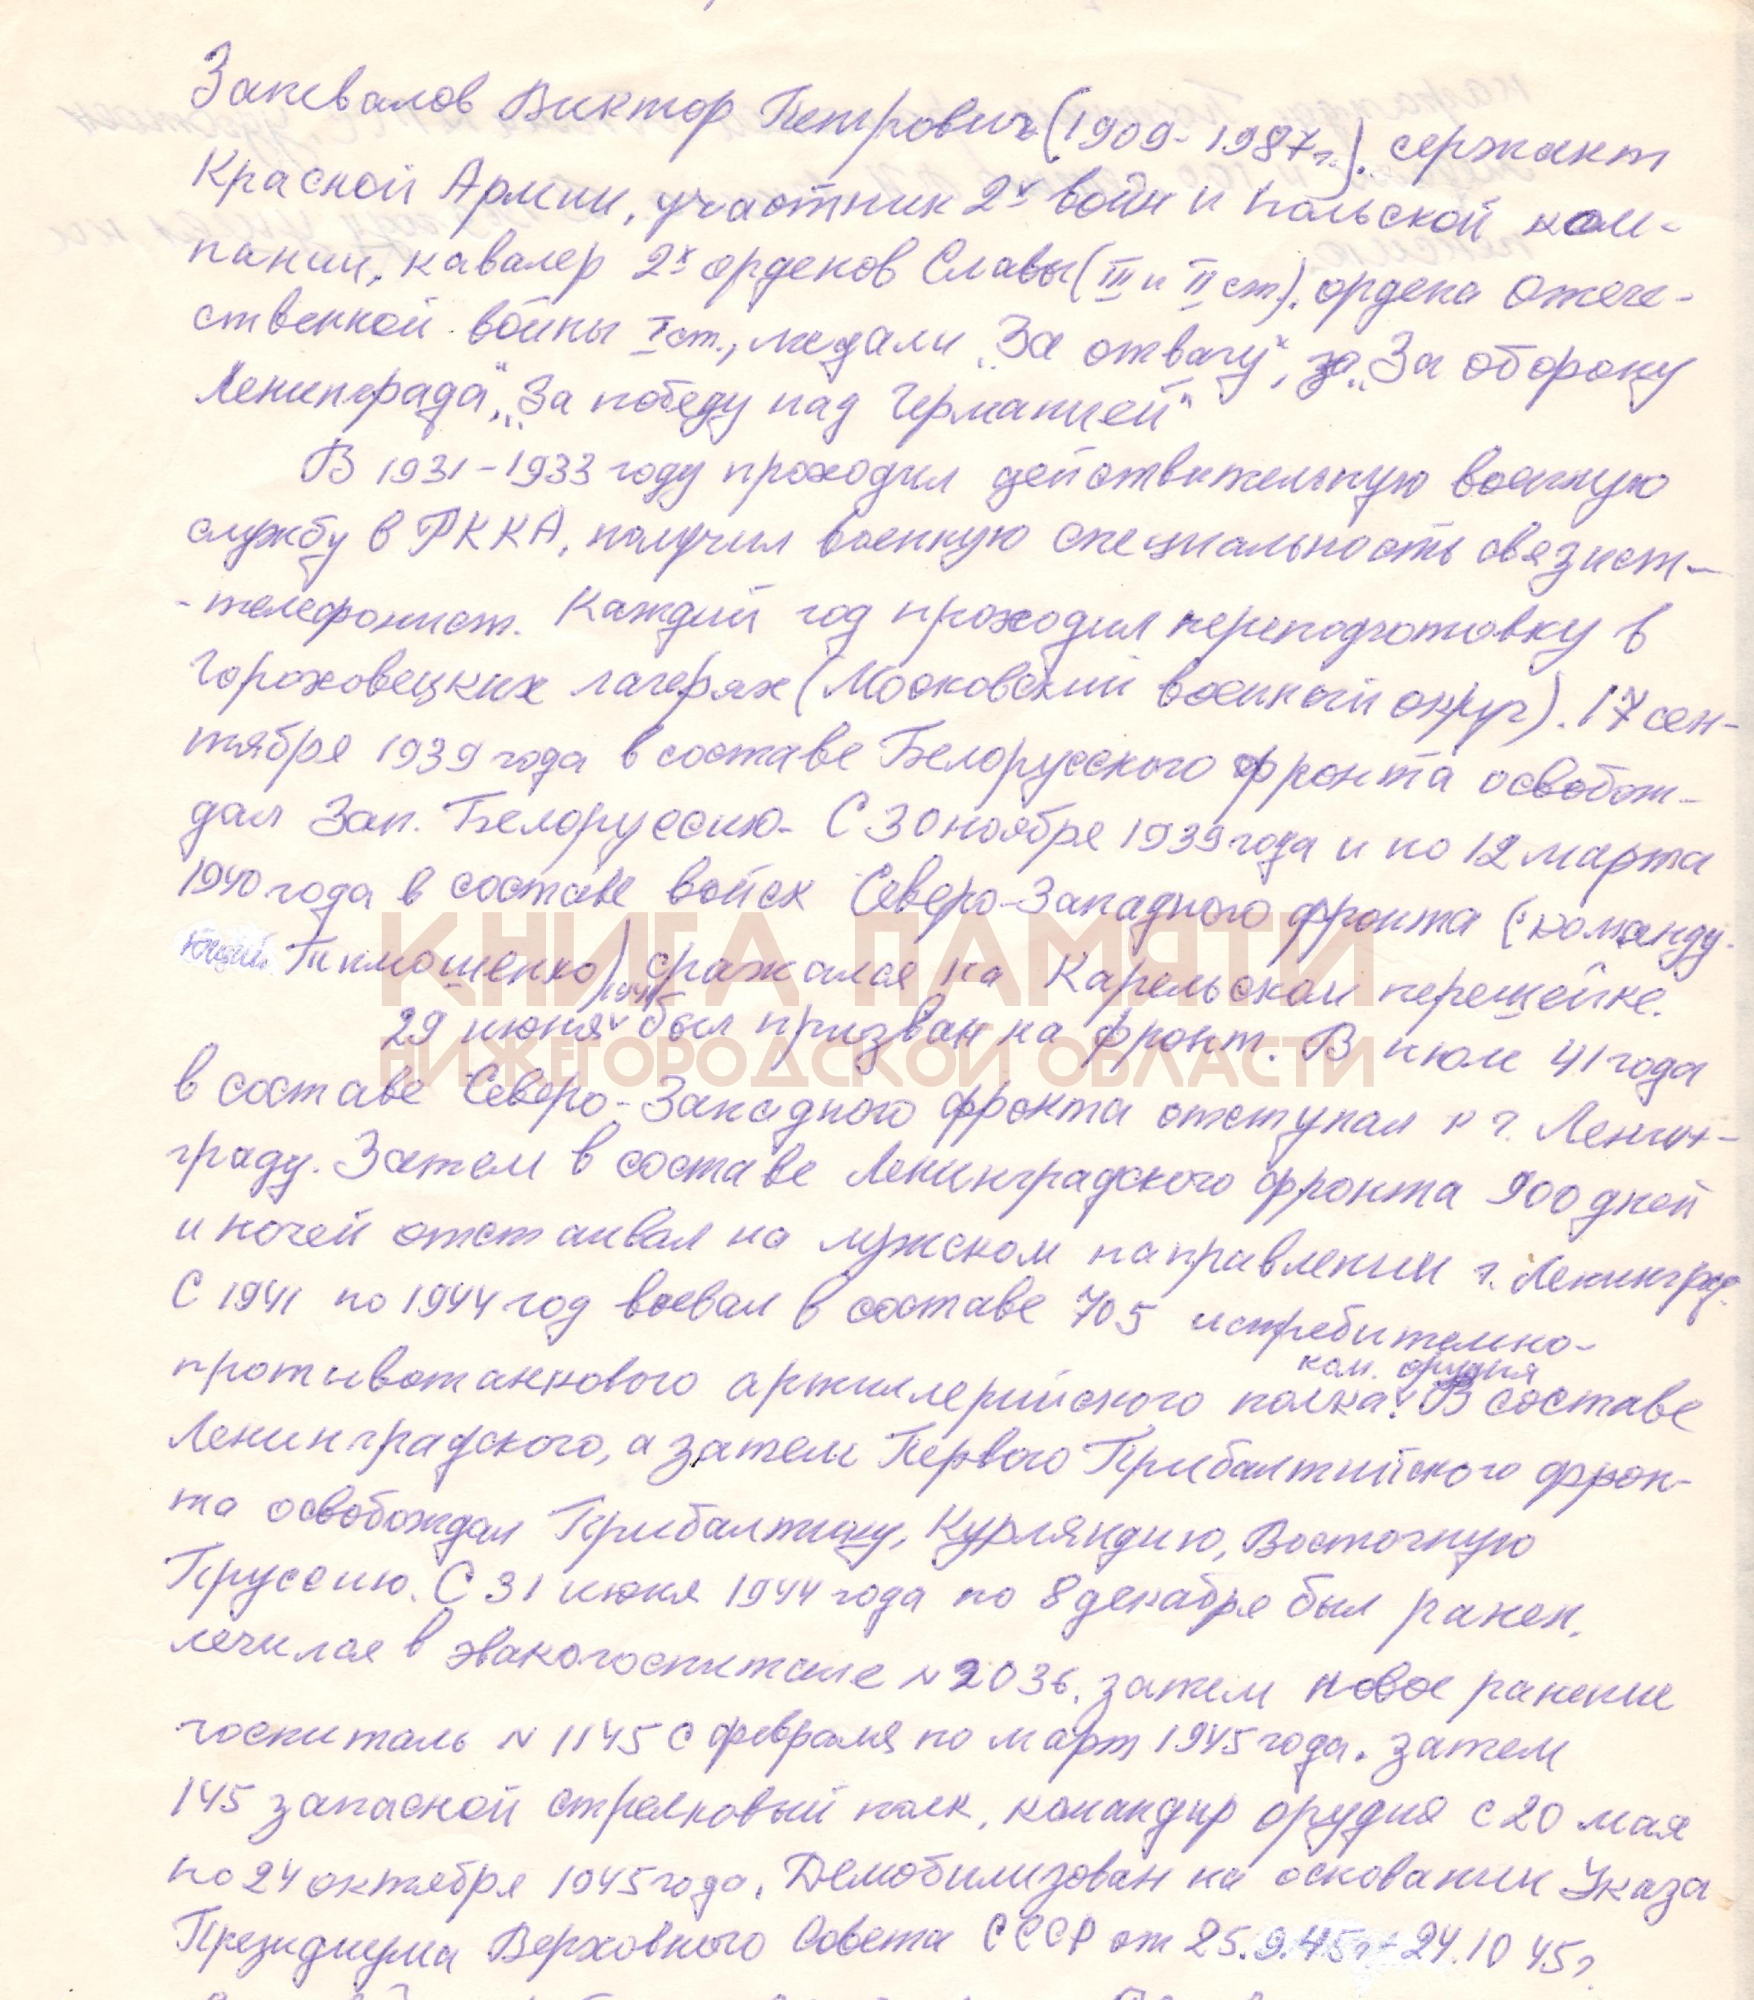 Запевалов Виктор Петрович (1909-1987г.). сержант
Красной Армии, участник 2х войн и польской кам-
пании, кавалер 2х орденов Славы (III и II ст.). ордена Отече-
ственной войны I ст., медали „За отвагу", за „За оборону
Ленинграда", „За победу над Германией"
В 1931-1933 году проходил действительную военную
службу в РККА, получил военную специальность связист-
-телефонист. Каждый год проходил переподготовку в
Гороховецких лагерях (Московский военный округ). 17 сен-
тября 1939 года в составе Белорусского фронта освобож-
дал Зап. Белоруссию. С 30 ноября 1939 года и по 12 марта
1940 года в составе войск Северо-Западного фронта (команду-
ющий Тимошенко) сражался на Карельском перешейке.
КНИГА ПАМЯТИ
1941
29 июня был призван на фронт. В июле 41 года
НИЖЕГОРОДСКОЙ ОБЛАСТИ
в составе Северо-Западного фронта отступал к г. Ленин-
граду. Затем в составе Ленинградского фронта 900 дней
и ночей отстаивал на лужском направлении г. Ленинград.
С 1941 по 1944 год воевал в составе 705 истребительно-
противотанкового артиллерийского полка. В составе
ком. орудия
Ленинградского, а затем Первого Прибалтийского фрон-
та освобождал Прибалтику, Курляндию, Восточную
Пруссию. С 31 июня 1944 года по 8 декабря был ранен.
лечился в эвакогоспитале N 2036. затем новое ранение
госпиталь N 1145 с февраля по март 1945 года. затем
145 запасной стрелковый полк, командир орудия с 20 мая
по 24 октября 1945 года. Демобилизован на основании Указа
Президиума Верховного Совета СССР от 25.9.45г. 24.10 45г.